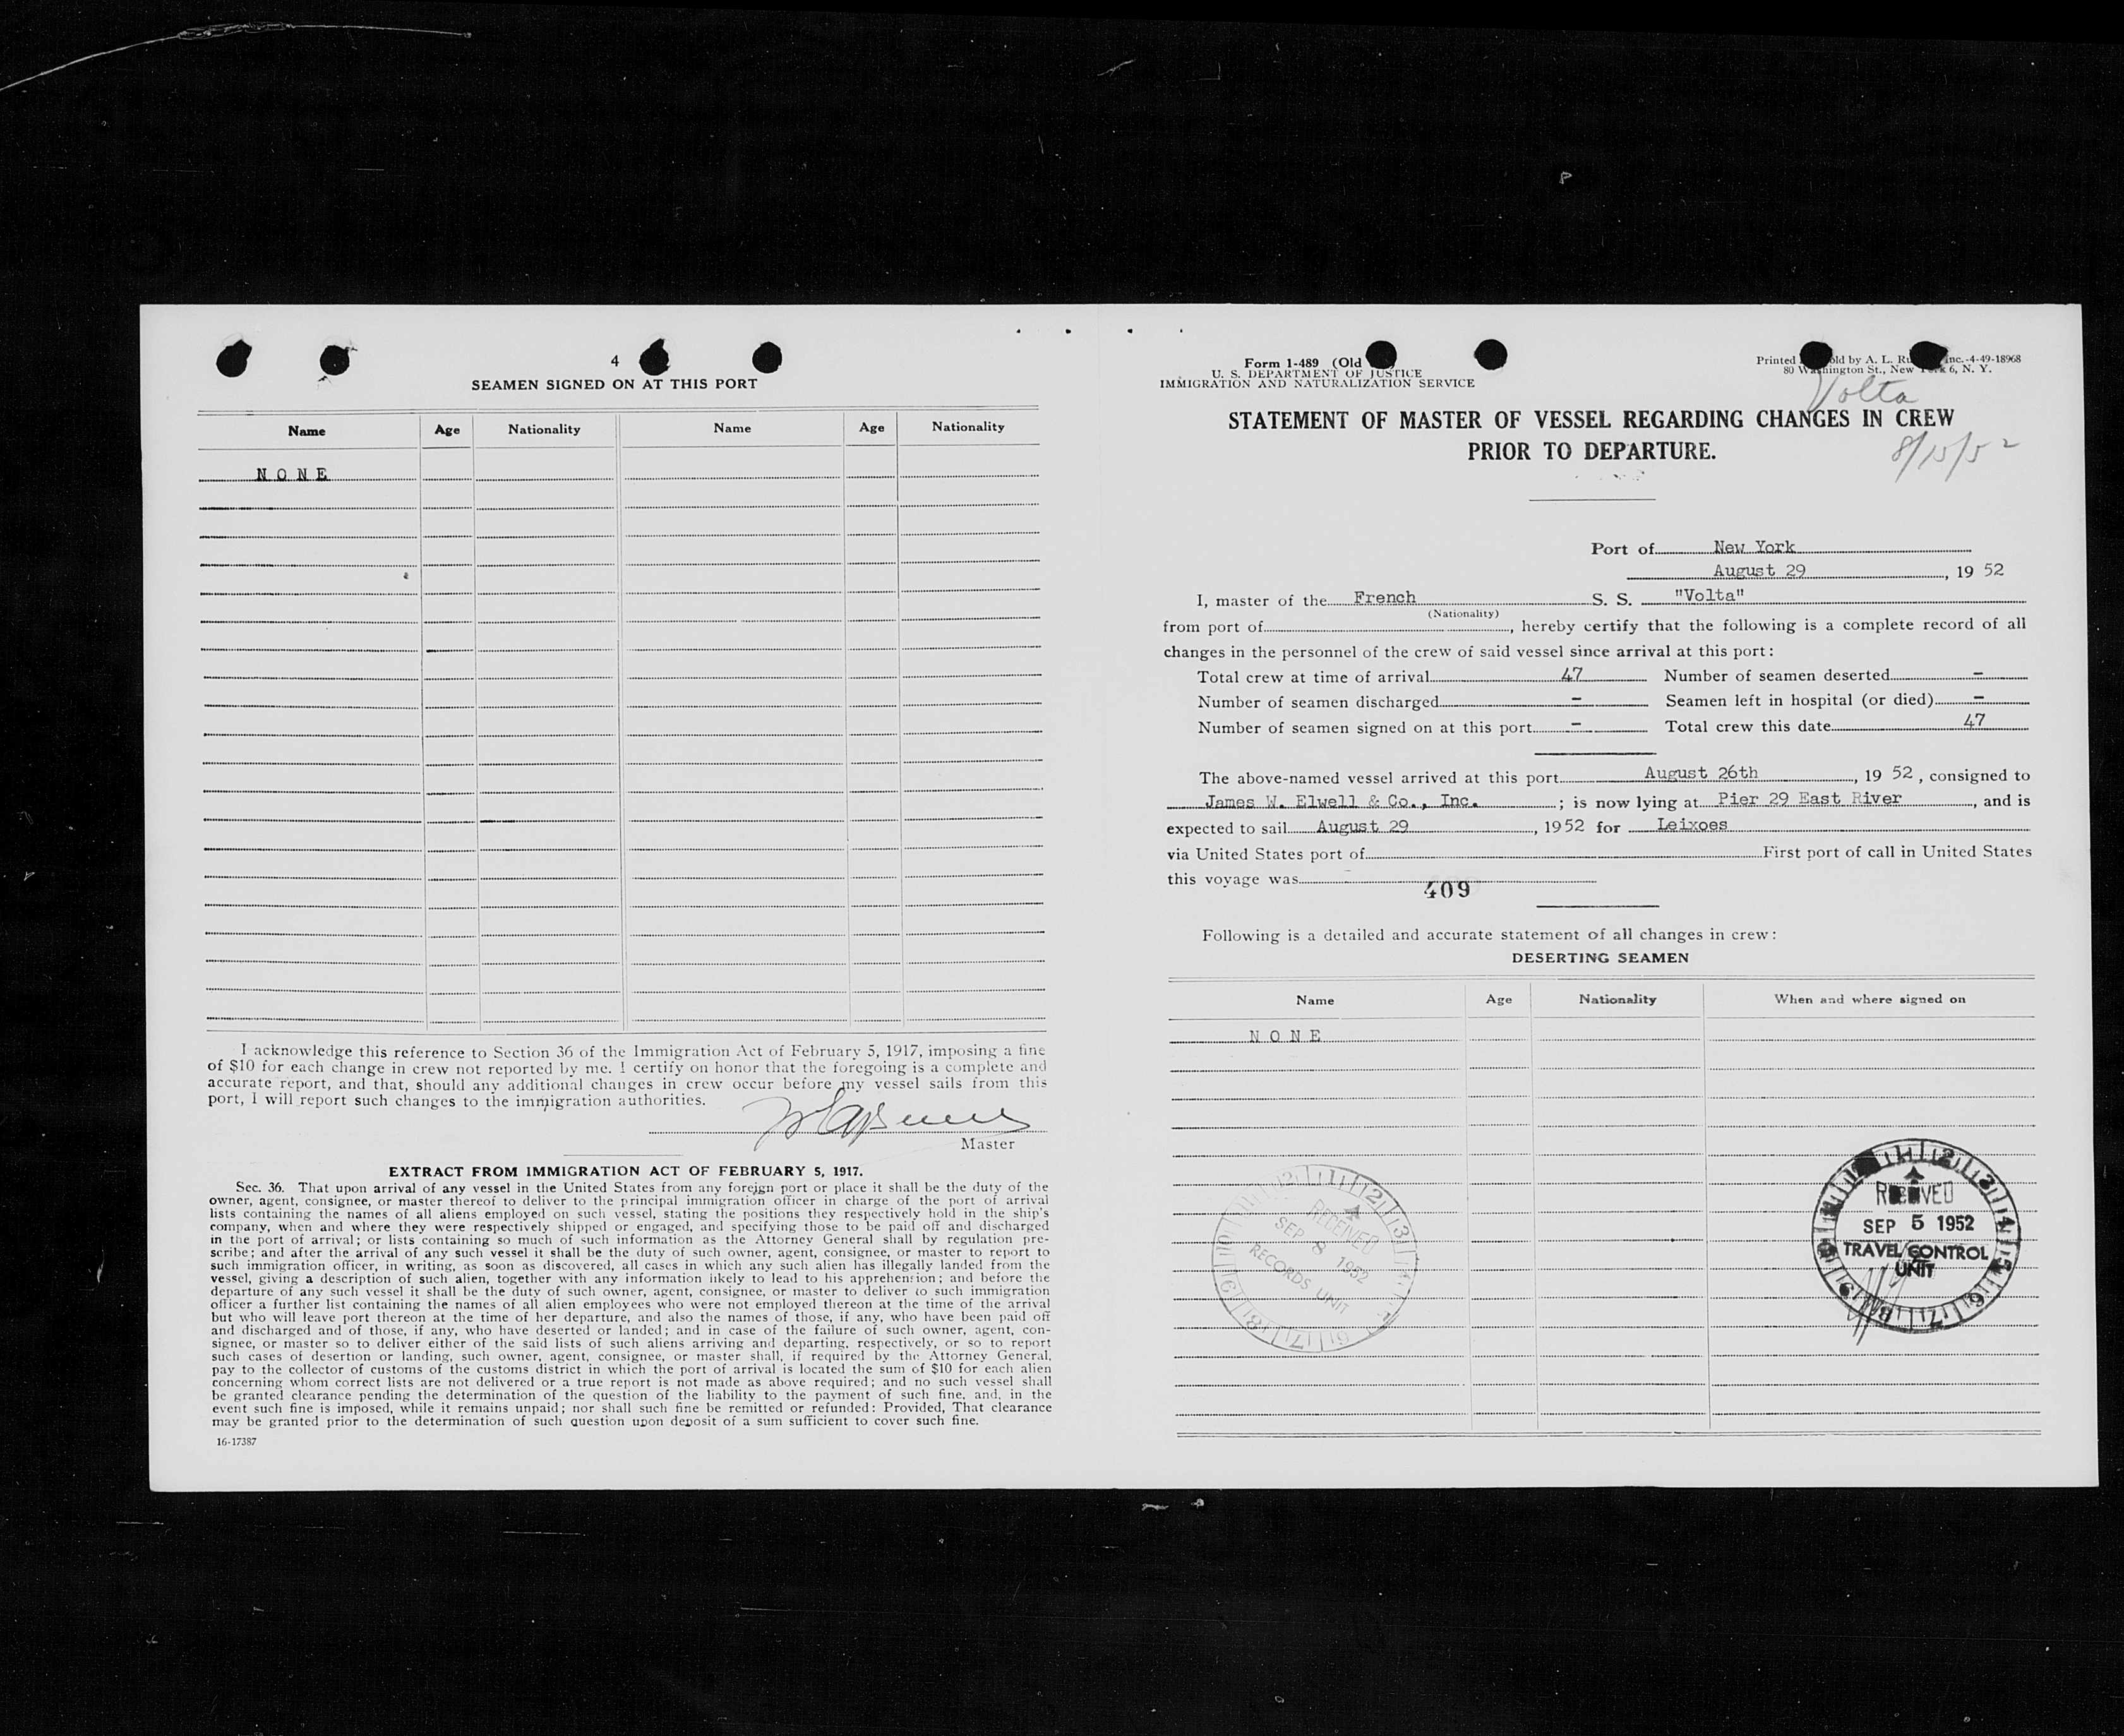 4
SEAMEN SIGNED ON AT THIS PORT
Name Age Nationality Name Age Nationality
NONE
I acknowledge this reference to Section 36 of the Immigration Act of February 5, 1917, imposing a fine
of $10 for each change in crew not reported by me. I certify on honor that the foregoing is a complete and
accurate report, and that, should any additional changes in crew occur before my vessel sails from this
port, I will report such changes to the immigration authorities.
Master
EXTRACT FROM IMMIGRATION ACT OF FEBRUARY 5, 1917.
Sec. 36. That upon arrival of any vessel in the United States from any foreign port or place it shall be the duty of the
owner, agent, consignee, or master thereof to deliver to the principal immigration officer in charge of the port of arrival
lists containing the names of all aliens employed on such vessel, stating the positions they respectively hold in the ship's
company, when and where they were respectively shipped or engaged, and specifying those to be paid off and discharged
in the port of arrival; or lists containing so much of such information as the Attorney General shall by regulation pre-
scribe; and after the arrival of any such vessel it shall be the duty of such owner, agent, consignee, or master to report to
such immigration officer, in writing, as soon as discovered, all cases in which any such alien has illegally landed from the
vessel, giving a description of such alien, together with any information likely to lead to his apprehension; and before the
departure of any such vessel it shall be the duty of such owner, agent, consignee, or master to deliver to such immigration
officer a further list containing the names of all alien employees who were not employed thereon at the time of the arrival
but who will leave port thereon at the time of her departure, and also the names of those, if any, who have been paid off
and discharged and of those, if any, who have deserted or landed; and in case of the failure of such owner, agent, con-
signee, or master so to deliver either of the said lists of such aliens arriving and departing, respectively, or so to report
such cases of desertion or landing, such owner, agent, consignee, or master shall, if required by the Attorney General,
pay to the collector of customs of the customs district in which the port of arrival is located the sum of $10 for each alien
concerning whom correct lists are not delivered or a true report is not made as above required; and no such vessel shall
be granted clearance pending the determination of the question of the liability to the payment of such fine, and, in the
event such fine is imposed, while it remains unpaid; nor shall such fine be remitted or refunded: Provided, That clearance
may be granted prior to the determination of such question upon deposit of a sum sufficient to cover such fine.
16-17387
Form 1-489 (Old
U. S. DEPARTMENT OF JUSTICE
IMMIGRATION AND NATURALIZATION SERVICE
Printed old by A. L. Ru Inc.-4-49-18968
80 Washington St., New York 6, N. Y.
Volta
STATEMENT OF MASTER OF VESSEL REGARDING CHANGES IN CREW
PRIOR TO DEPARTURE.
8/15/52
Port of New York
August 29, 19 52
I, master of the French S. S. "Volta"
(Nationality)
from port of, hereby certify that the following is a complete record of all
changes in the personnel of the crew of said vessel since arrival at this port:
Total crew at time of arrival 47 Number of seamen deserted -
Number of seamen discharged - Seamen left in hospital (or died) -
Number of seamen signed on at this port - Total crew this date 47
The above-named vessel arrived at this port August 26th, 19 52, consigned to
James W. Elwell & Co., Inc.; is now lying at Pier 29 East River, and is
expected to sail August 29, 1952 for Leixoes
via United States port of First port of call in United States
this voyage was
409
Following is a detailed and accurate statement of all changes in crew:
DESERTING SEAMEN
Name Age Nationality When and where signed on
NONE
RECEIVED
SEP 8 1952
RECORDS UNIT
RECEIVED
SEP 5 1952
TRAVEL CONTROL
UNIT